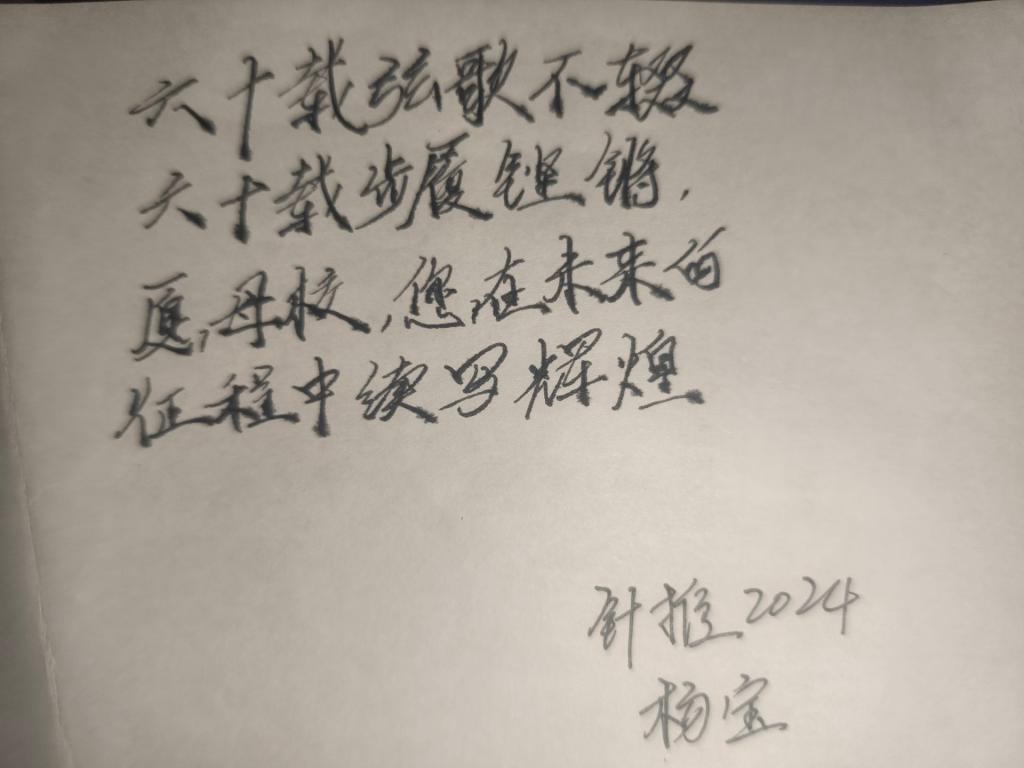 六十载弦歌不辍
六十载步履铿锵，
愿，母校，您，在未来的
征程中续写辉煌
针推2024
杨宝